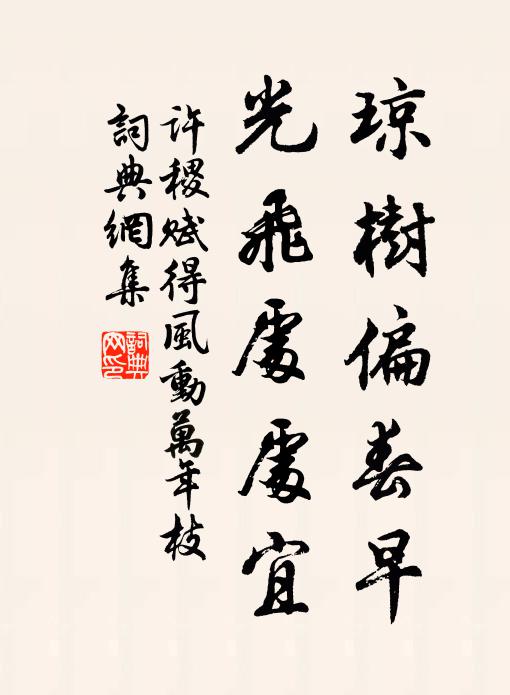 琼樹偏春早
光飛處處宜
許稷賦得風動萬年枝
詞典網集
詞典网印